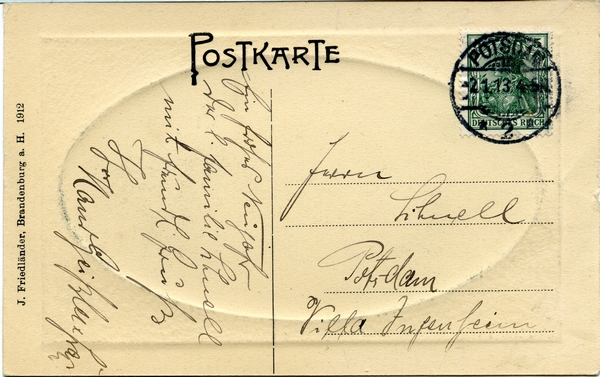 POSTKARTE
POTSDAM
2.1.13.4-5
2
DEUTSCHES REICH
Ein frohes Neujahr
der l. Familie Schnell
mit freundl. Gruß
Herrn
Schnell
Potsdam
Villa Ingenheim
J. Friedländer, Brandenburg a. H. 1912